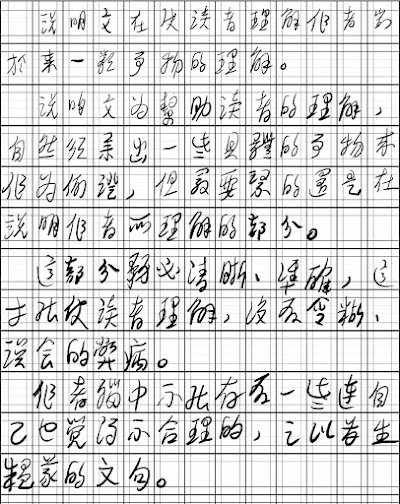 說明文在使讀者理解作者對
於某一類事物的理解。
說明文為幫助讀者的理解，
自然須舉出一些具體的事物來
作為例證，但最要緊的還是在
說明作者所理解的部分。
這部分務必清晰、準確，這
才能使讀者理解，沒有含糊、
誤會的弊病。
作者腦中不能存有一些連自
己也覺得不合理的，足以產生
的文句。